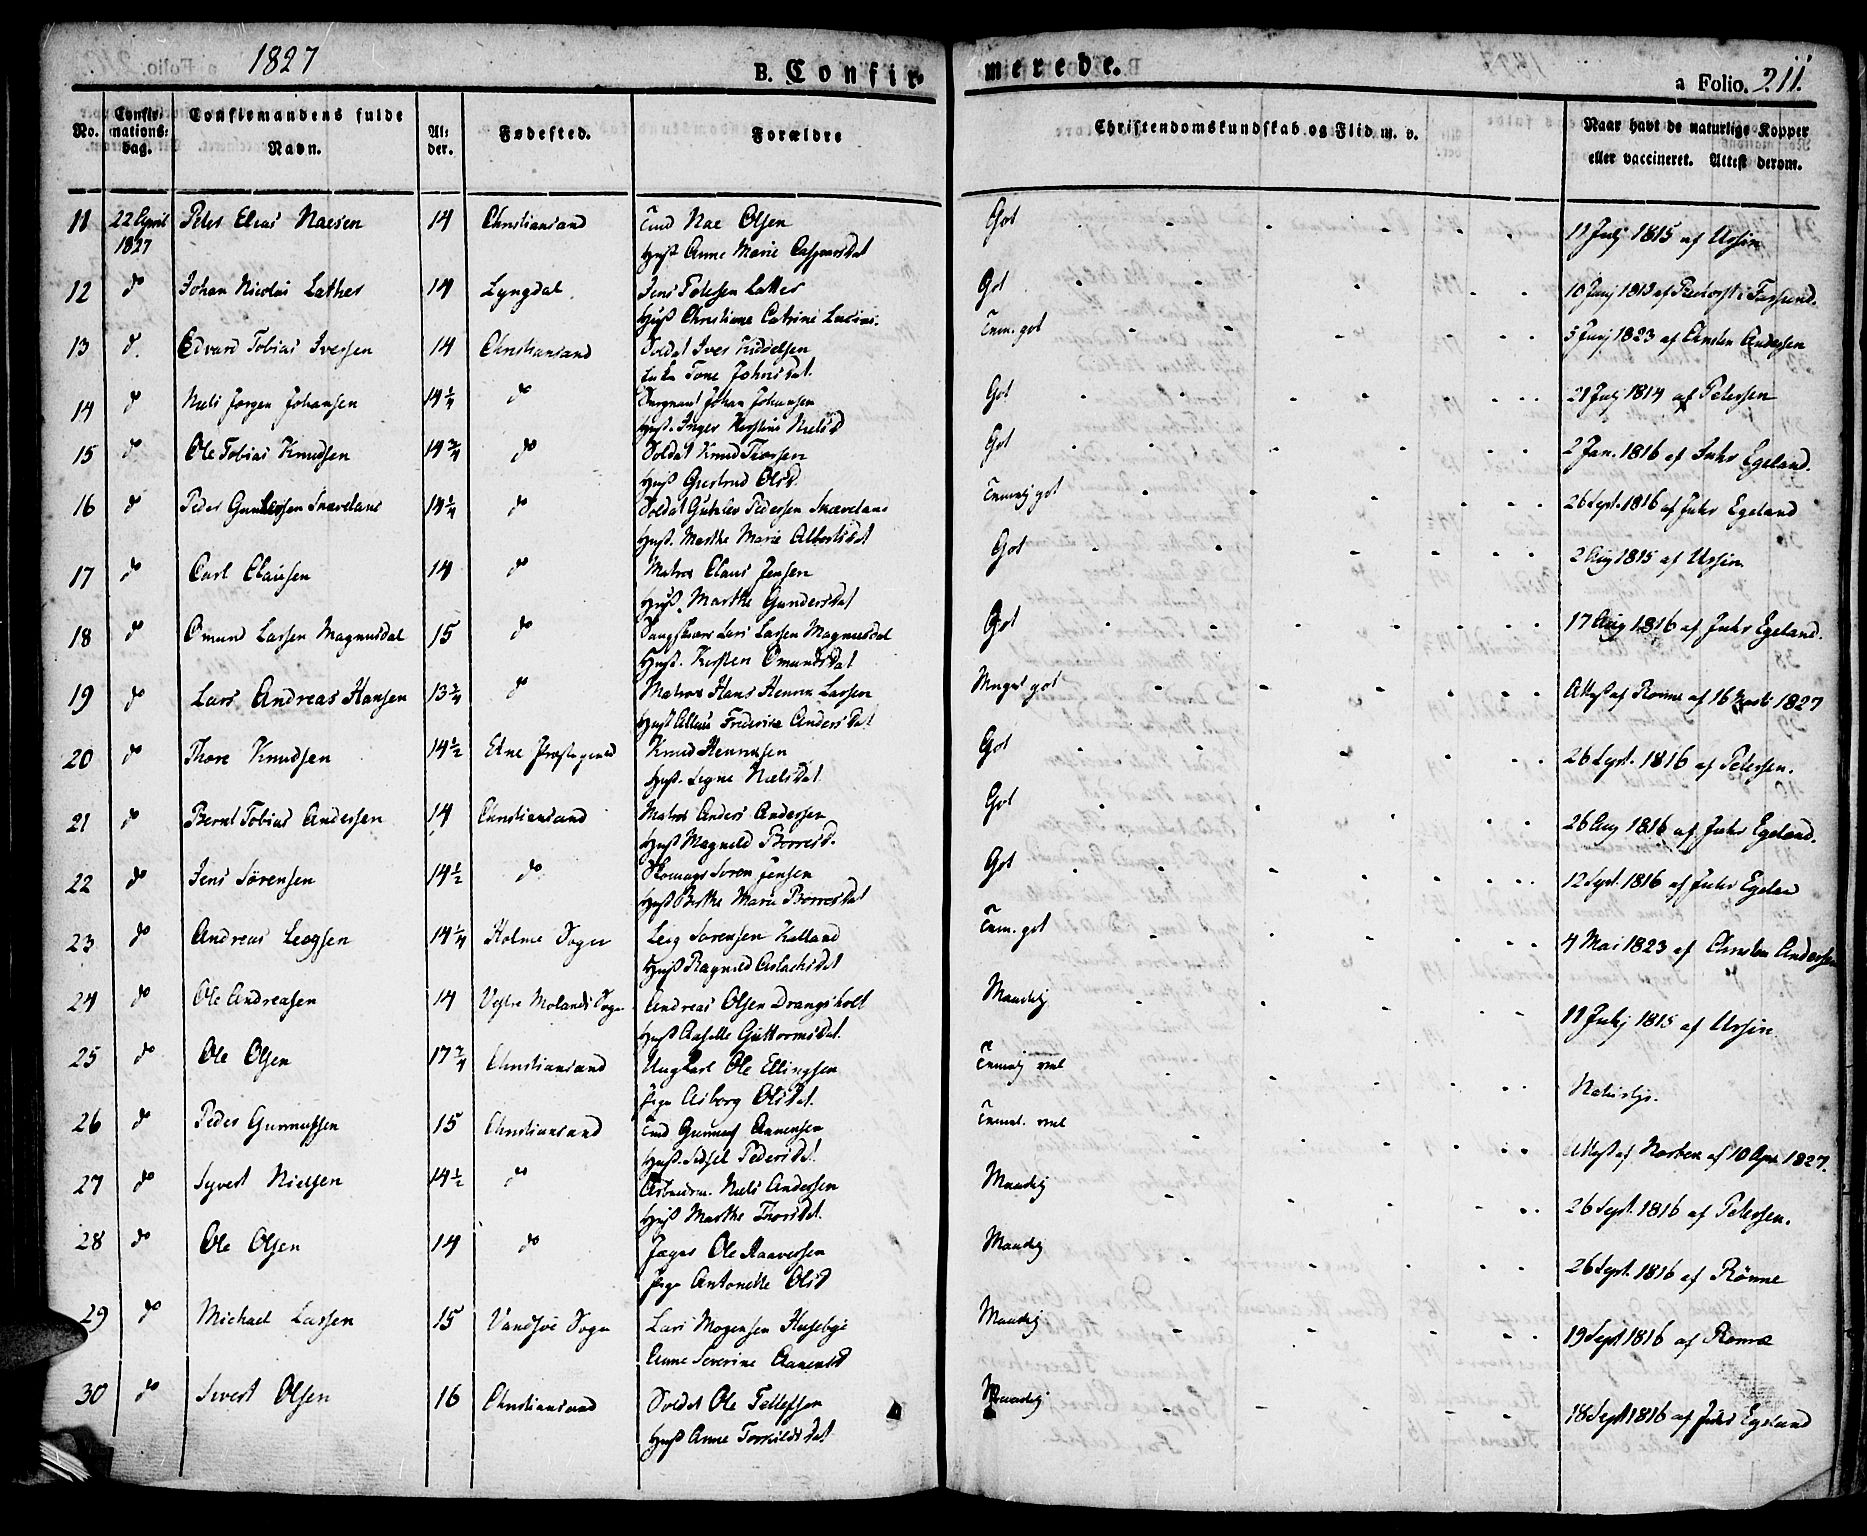 1827
B. Confirmerede.
a Folio. 211.
No. | Confirmations-dag. | Confirmandens fulde Navn. | Alder. | Fødested. | Forældre | Christendomskundskab og Flid m. v. | Naar havt de naturlige Kopper eller vaccineret. Attest derom.
11 | 22 April 1827 | Peder Elias Naesen | 14 | Christiansand | Tmd Nae Olsen
Hust Anne Marie Caspersdat | Got | 11 July 1815 af Ursin
12 | do | Johan Nicolai Lather | 14 | Lyngdal | Jens Petersen Lather
Hust Christiane Catrine | Got | 10 Juny 1813 af
13 | do | Edvard Tobias Iversen | 14 | Christiansand | Soldat Iver
Tone Johnsdat. | Tem. got | 5 Juny 1823 af Christen Anderssen
14 | do | Niels Jørgen Johansen | 14 1/4 | do | Sergeant Johan Johansen
Hust. Inger Kirstine Nielsd | Got | 21 July 1814 af Petersen
15 | do | Ole Tobias Knudsen | 14 3/4 | do | Soldat Knud Thorsen
Hust Giertrud Olsd. | Got | 2 Jan. 1816 af Juhr Egeland.
16 | do | Peder Gunlefsen | 14 1/4 | do | Soldat Gunlev Pedersen
Hust. Marthe Marie Albertsdat | Temmelig got | 26 Sept. 1816 af Juhr Egeland
17 | do | Carl Clausen | 14 | do | Matros Claus Jensen
Hust. Marthe Gundersdat | Got | 2 Aug 1815 af Ursin.
18 | do | Omund Larsen Magnusdal | 15 | do | Lars Larsen Magnusdal
Hust. Kirsten Omundsdat | Got | 17 Aug 1816 af Juhr Egeland.
19 | do | Lars Andreas Hansen | 13 3/4 | do | Matros Hans Henrik Larsen
Hust Frederica Andersdat | Meget got | Attest af Rønne af 16 1827
20 | do | Thore Knudsen | 14 1/2 | Etne Præstegield | Knud
Hust. Signe Nielsdat. | Got | 26 Sept. 1816 af Petersen.
21 | do | Bernt Tobias Andersen | 14 | Christiansand | Matros Anders Andersen
Hust Magnild | Got | 26 Aug 1816 af Juhr Egeland.
22 | do | Jens Sørensen | 14 1/2 | do | Skomager Søren Jensen
Hust Berthe Marie | Got | 12 Sept. 1816 af Juhr Egeland
23 | do | Andreas | 14 1/4 | Holme Sogn | Sørensen
Hust Ragnild Aslachsdat | Tem. got | 4 Mai 1823 af Christen Andersen
24 | do | Ole Andreasen | 14 | Vestre Molands Sogn | Andreas Olsen Drangsholt
Hust Guttormsdat. | Maadelig | 11 July 1815 af Ursin
25 | do | Ole Olsen | 17 3/4 | Christiansand | Ungkarl Ole Ellingsen
Pige Asborg Olsdat. | Temmelig vel | Naturlige.
26 | do | Peder | 15 | Christiansand | Tmd
Hust. Sidsel Pedersdat. | Temmel. vel | Attest af af 10 Apr. 1827.
27 | do | Syvert Nielsen | 14 1/2 | do | Arbeidsm. Niels Andersen
Hust Marthe Thorsdat. | Maadelig | 26 Sept. 1816 af Petersen.
28 | do | Ole Olsen | 14 | do | Jæger Ole
Pige Antonette Olsd | Maadelig | 26 Sept. 1816 af Rønne
29 | do | Michael Larsen | 15 | Sogn | Lars Mogensen
Anne Severine | Maadelig | 19 Sept 1816 af Rønne
30 | do | Sivert Olsen | 16 | Christiansand | Soldat Ole Tellefsen
Hust Anne Torkildsdat | Maadelig | 18 Sept 1816 af Juhr Egeland